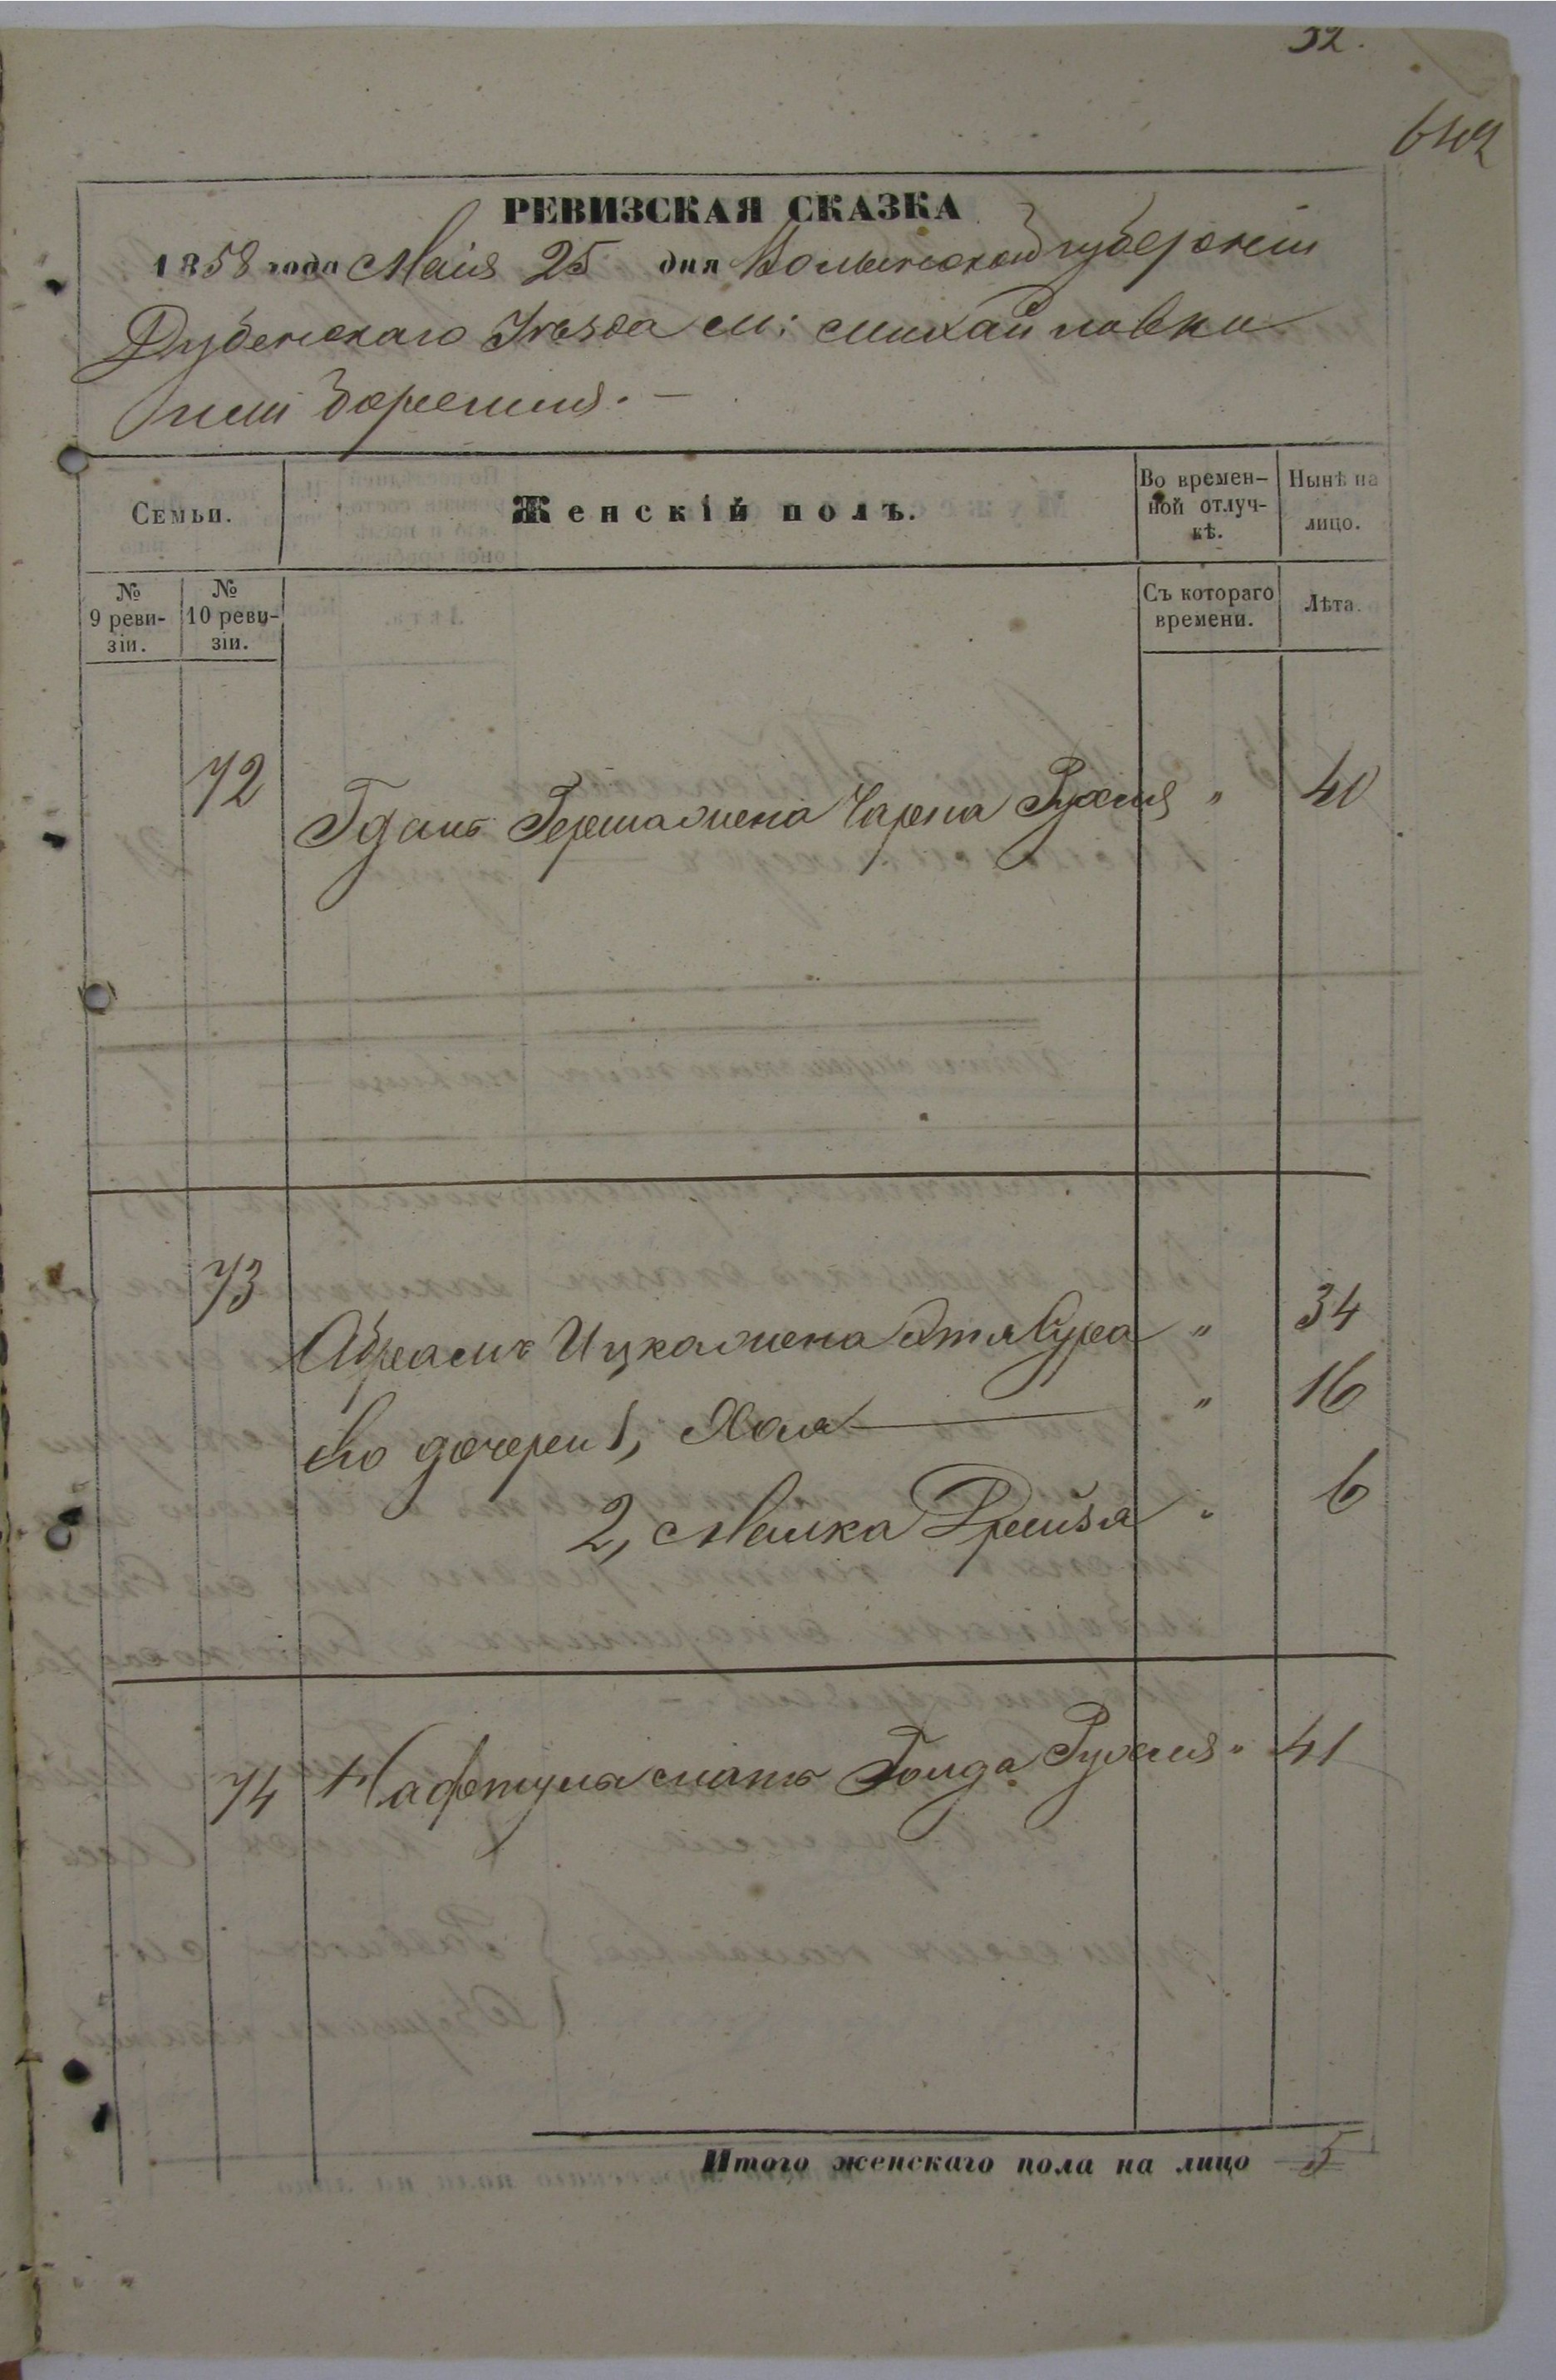 32.
642
РЕВИЗСКАЯ СКАЗКА
1858 года Маія 25 дня Волынской губерніи
Дубенскаго Уѣзда м: михайловки
Семьи.
Женскій полъ.
Во времен-
ной отлуч-
кѣ.
Нынѣ на
лицо.
№
9 реви-
зіи.
№
10 реви-
зіи.
Съ котораго
времени.
Лѣта.
72 Гершка жена Чарна Рухля " 40
73 Абрамъ Ицка жена Этя Сура " 34
Его дочери 1, Хая " 16
2, Малка Рейзя " 6
74 мать Голда Рухля " 41
Итого женскаго пола на лицо 5